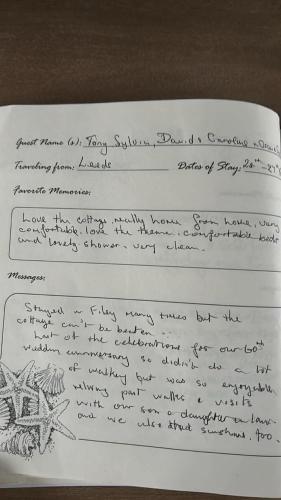 Guest Name (s): Tony Sylvia, David & Caroline
Traveling from: Leeds Dates of Stay: 20th - 27th
Favorite Memories:
Love the cottage, really home from home, very
comfortably. love the theme. comfortable beds
and lovely shower. very clean.
Messages:
Stayed in Filey many times but the
cottage can't be beaten.
Last of the celebrations for our 60th
wedding anniversary so didn't do a lot
of walking but was so enjoyable
reliving past walks & visits
with our son & daughter in law
and we also had sunshine, too.